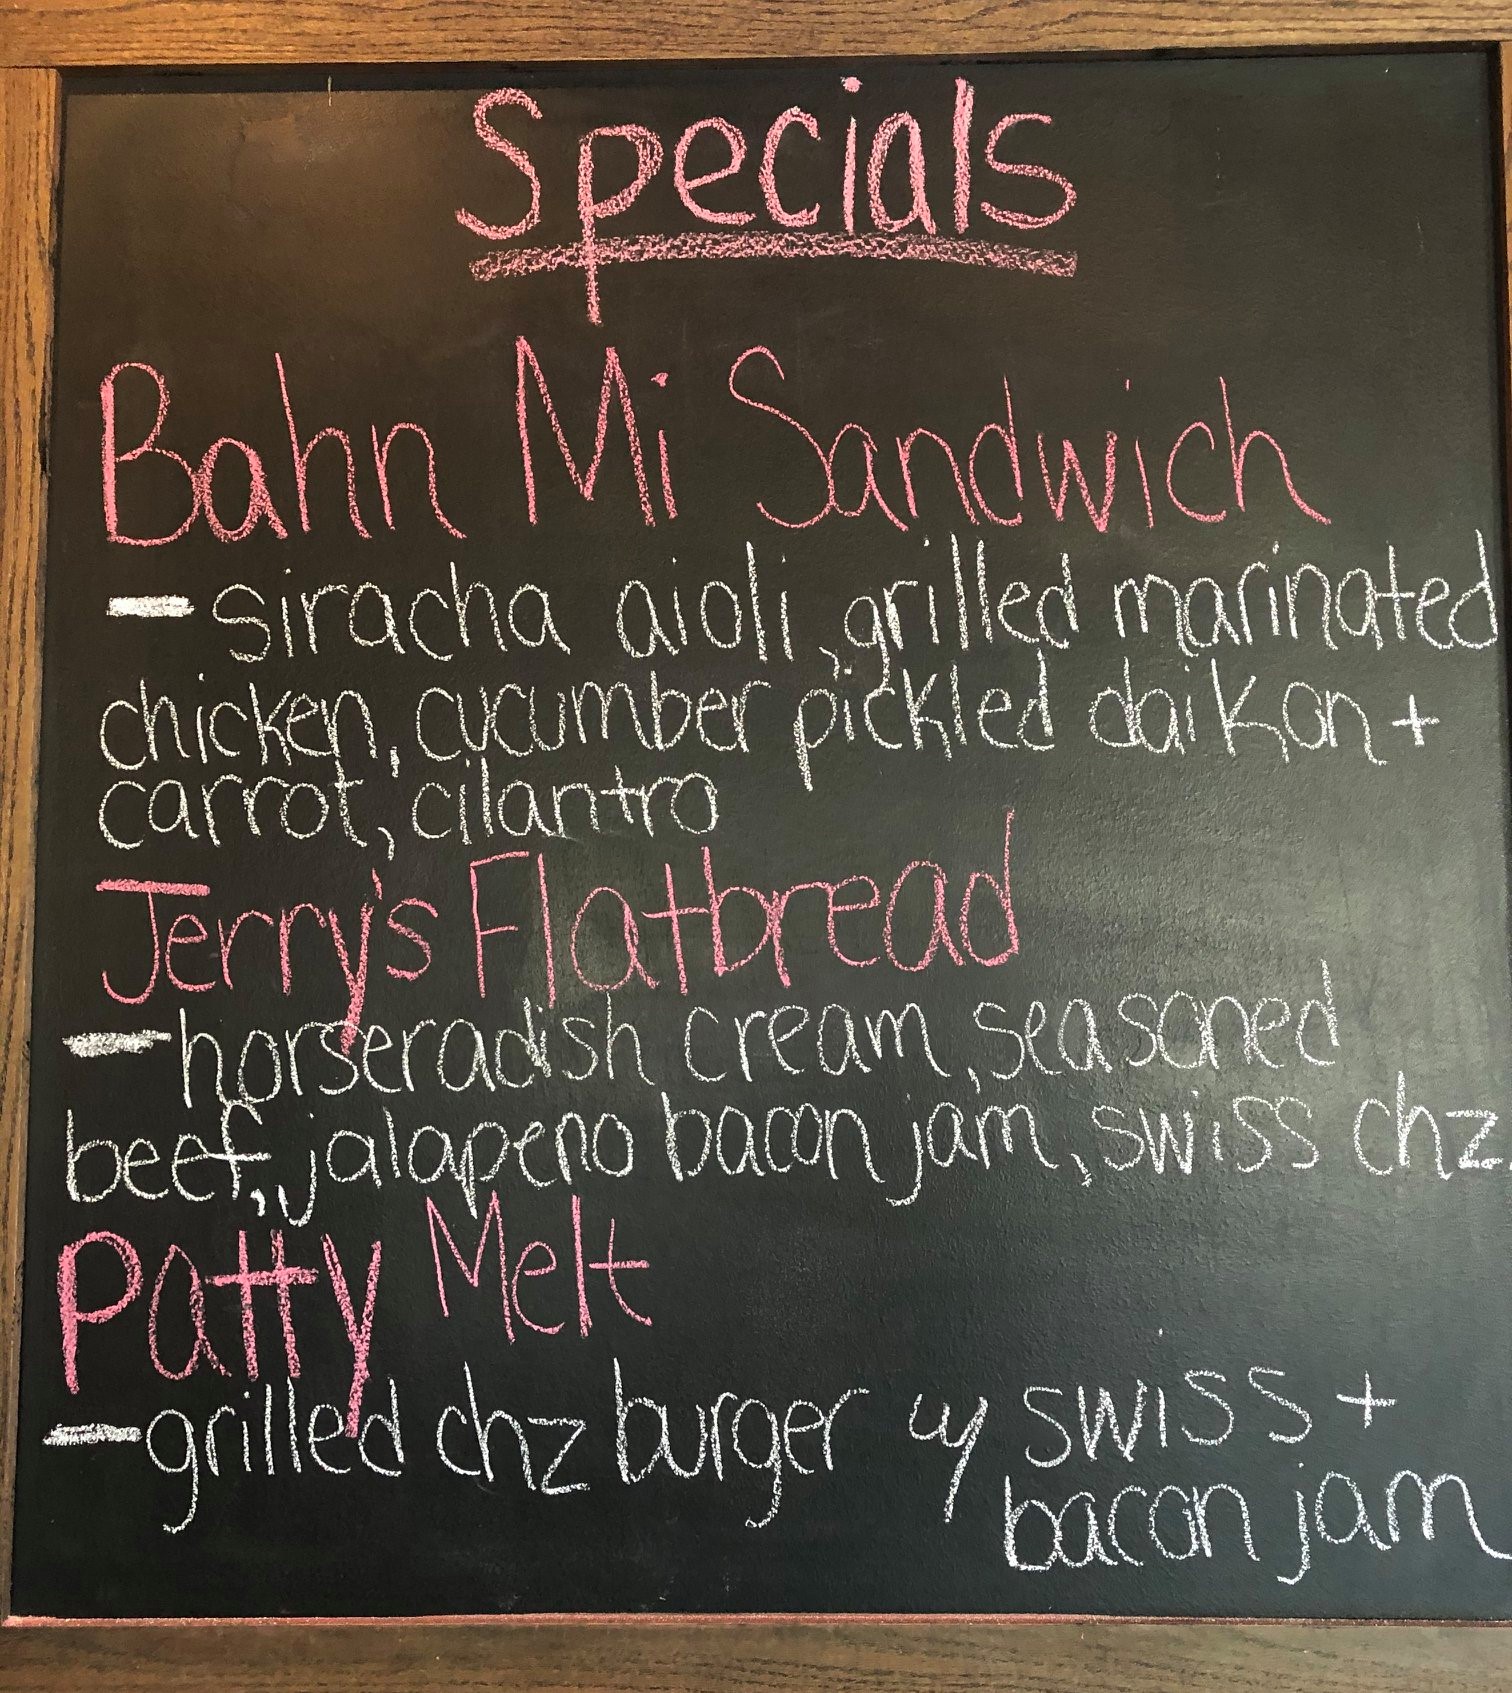 Specials
Bahn Mi Sandwich
- siracha aioli, grilled marinated
chicken, cucumber pickled daikon +
carrot, cilantro
Jerry's Flatbread
- horseradish cream, seasoned
beef, jalapeno bacon jam, swiss chz
Patty Melt
- grilled chz burger w/ swiss +
bacon jam